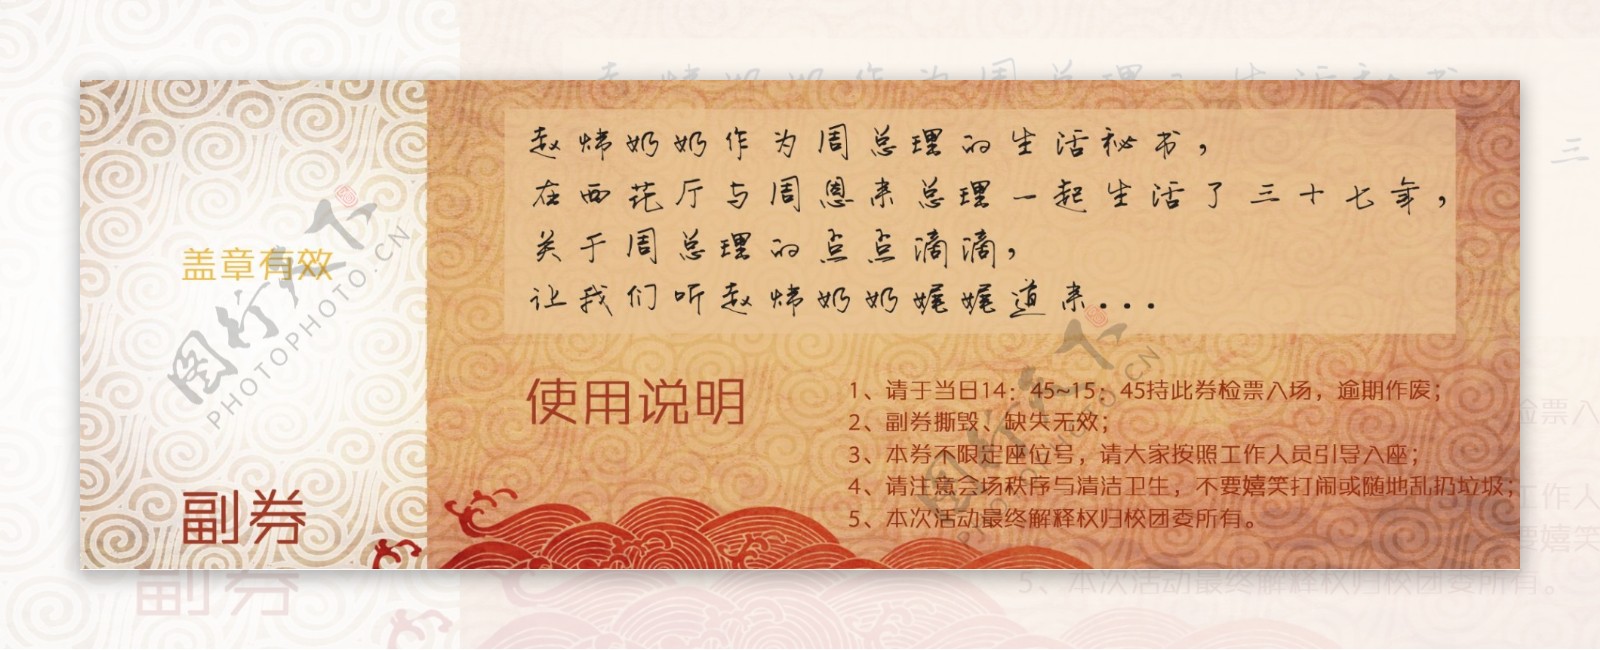 赵炜奶奶作为周总理的生活秘书，
在西花厅与周恩来总理一起生活了三十七年，
关于周总理的点点滴滴，
让我们听赵炜奶奶娓娓道来...
盖章有效
副券
使用说明
1、请于当日14：45~15：45持此券检票入场，逾期作废；
2、副券撕毁、缺失无效；
3、本券不限定座位号，请大家按照工作人员引导入座；
4、请注意会场秩序与清洁卫生，不要嬉笑打闹或随地乱扔垃圾；
5、本次活动最终解释权归校团委所有。
图行天下
PHOTOPHOTO.CN
图行天下
PHOTOPHOTO.CN